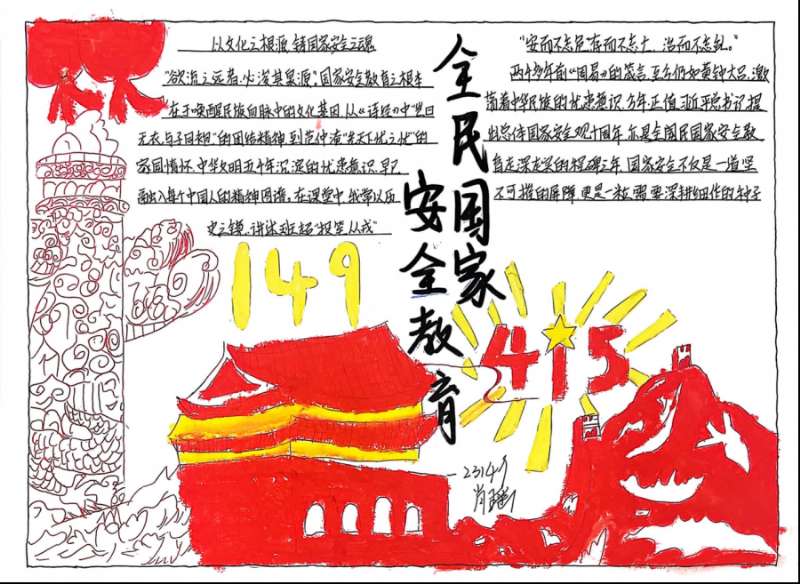 以文化之根源 铸国家安全之魂
"欲流之远者,必浚其泉源"。国家安全教育之根本
在于唤醒民族血脉中的文化基因,从《诗经》中"岂曰
无衣,与子同袍"的团结精神,到范仲淹"先天下忧之忧"的
家国情怀,中华文明五千年沉淀的忧患意识,早已
融入每个中国人的精神图谱。在课堂中,我学以历
史之镜,讲述班超"投笔从戎"
全民国家
安全教育
"安而不忘危,存而不忘亡,治而不忘乱。"
两千多年前《周易》的箴言,至今仍如黄钟大吕,激
荡着中华民族的忧患意识。今年正值习近平总书记提
出总体国家安全观十周年,亦是全国民国家安全教
育走深走实的程碑之年,国家安全不仅是一道坚
不可摧的屏障,更是一粒需要深耕细作的种子
149
415